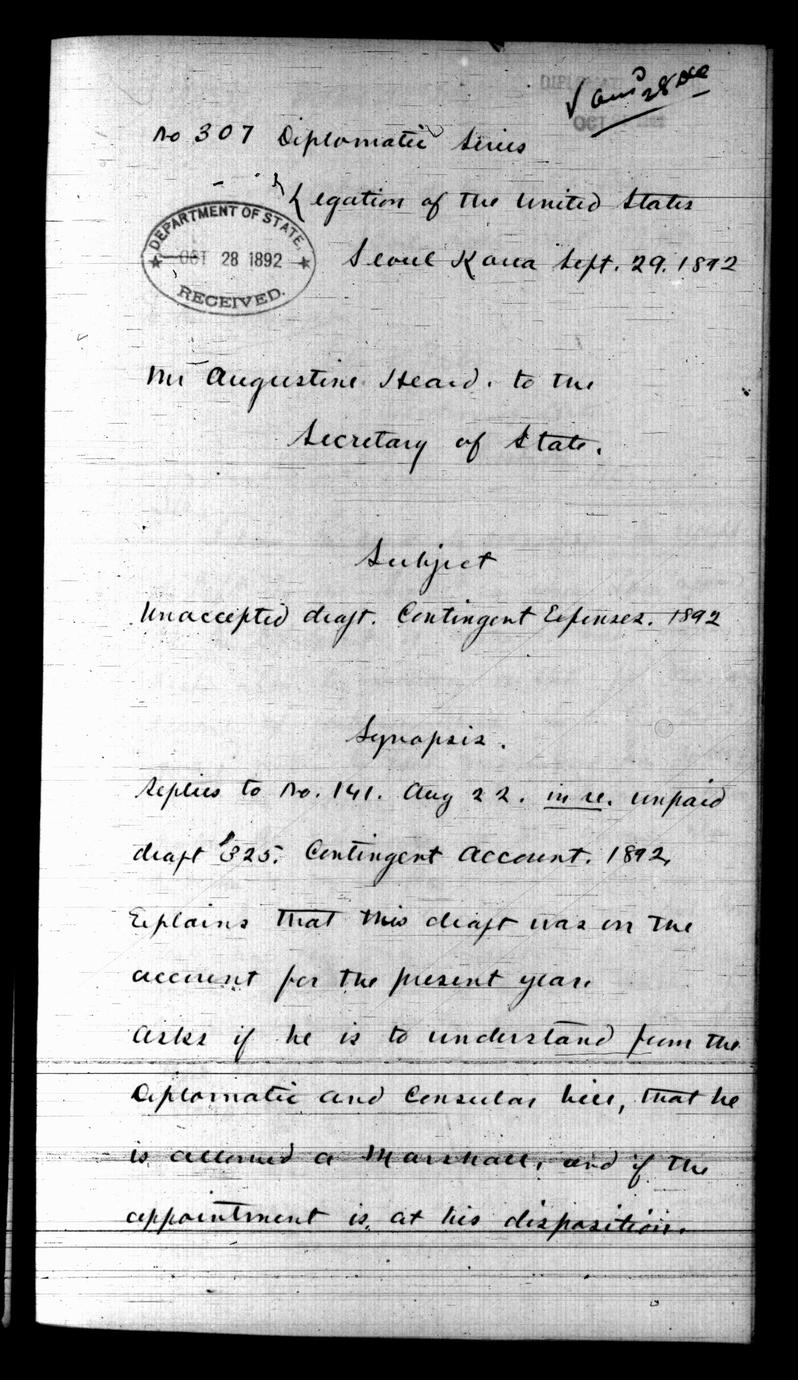 √ Ansd 28 Dec
DIPLOMAT
OCT
No 307 Diplomatic Series
Legation of the United States
DEPARTMENT OF STATE.
OCT 28 1892
RECEIVED.
Seoul Korea Sept. 29. 1892
Mr Augustine Heard. to the
Secretary of State.
Subject
Unaccepted draft. Contingent Expenses. 1892
Synopsis.
Replies to No. 141. Aug 22. in re. unpaid
draft $325. Contingent Account. 1892.
Explains that this draft was on the
account for the present year.
Asks if he is to understand from the
Diplomatic and Consular bill, that he
is allowed a Marshall, and if the
appointment is at his disposition.